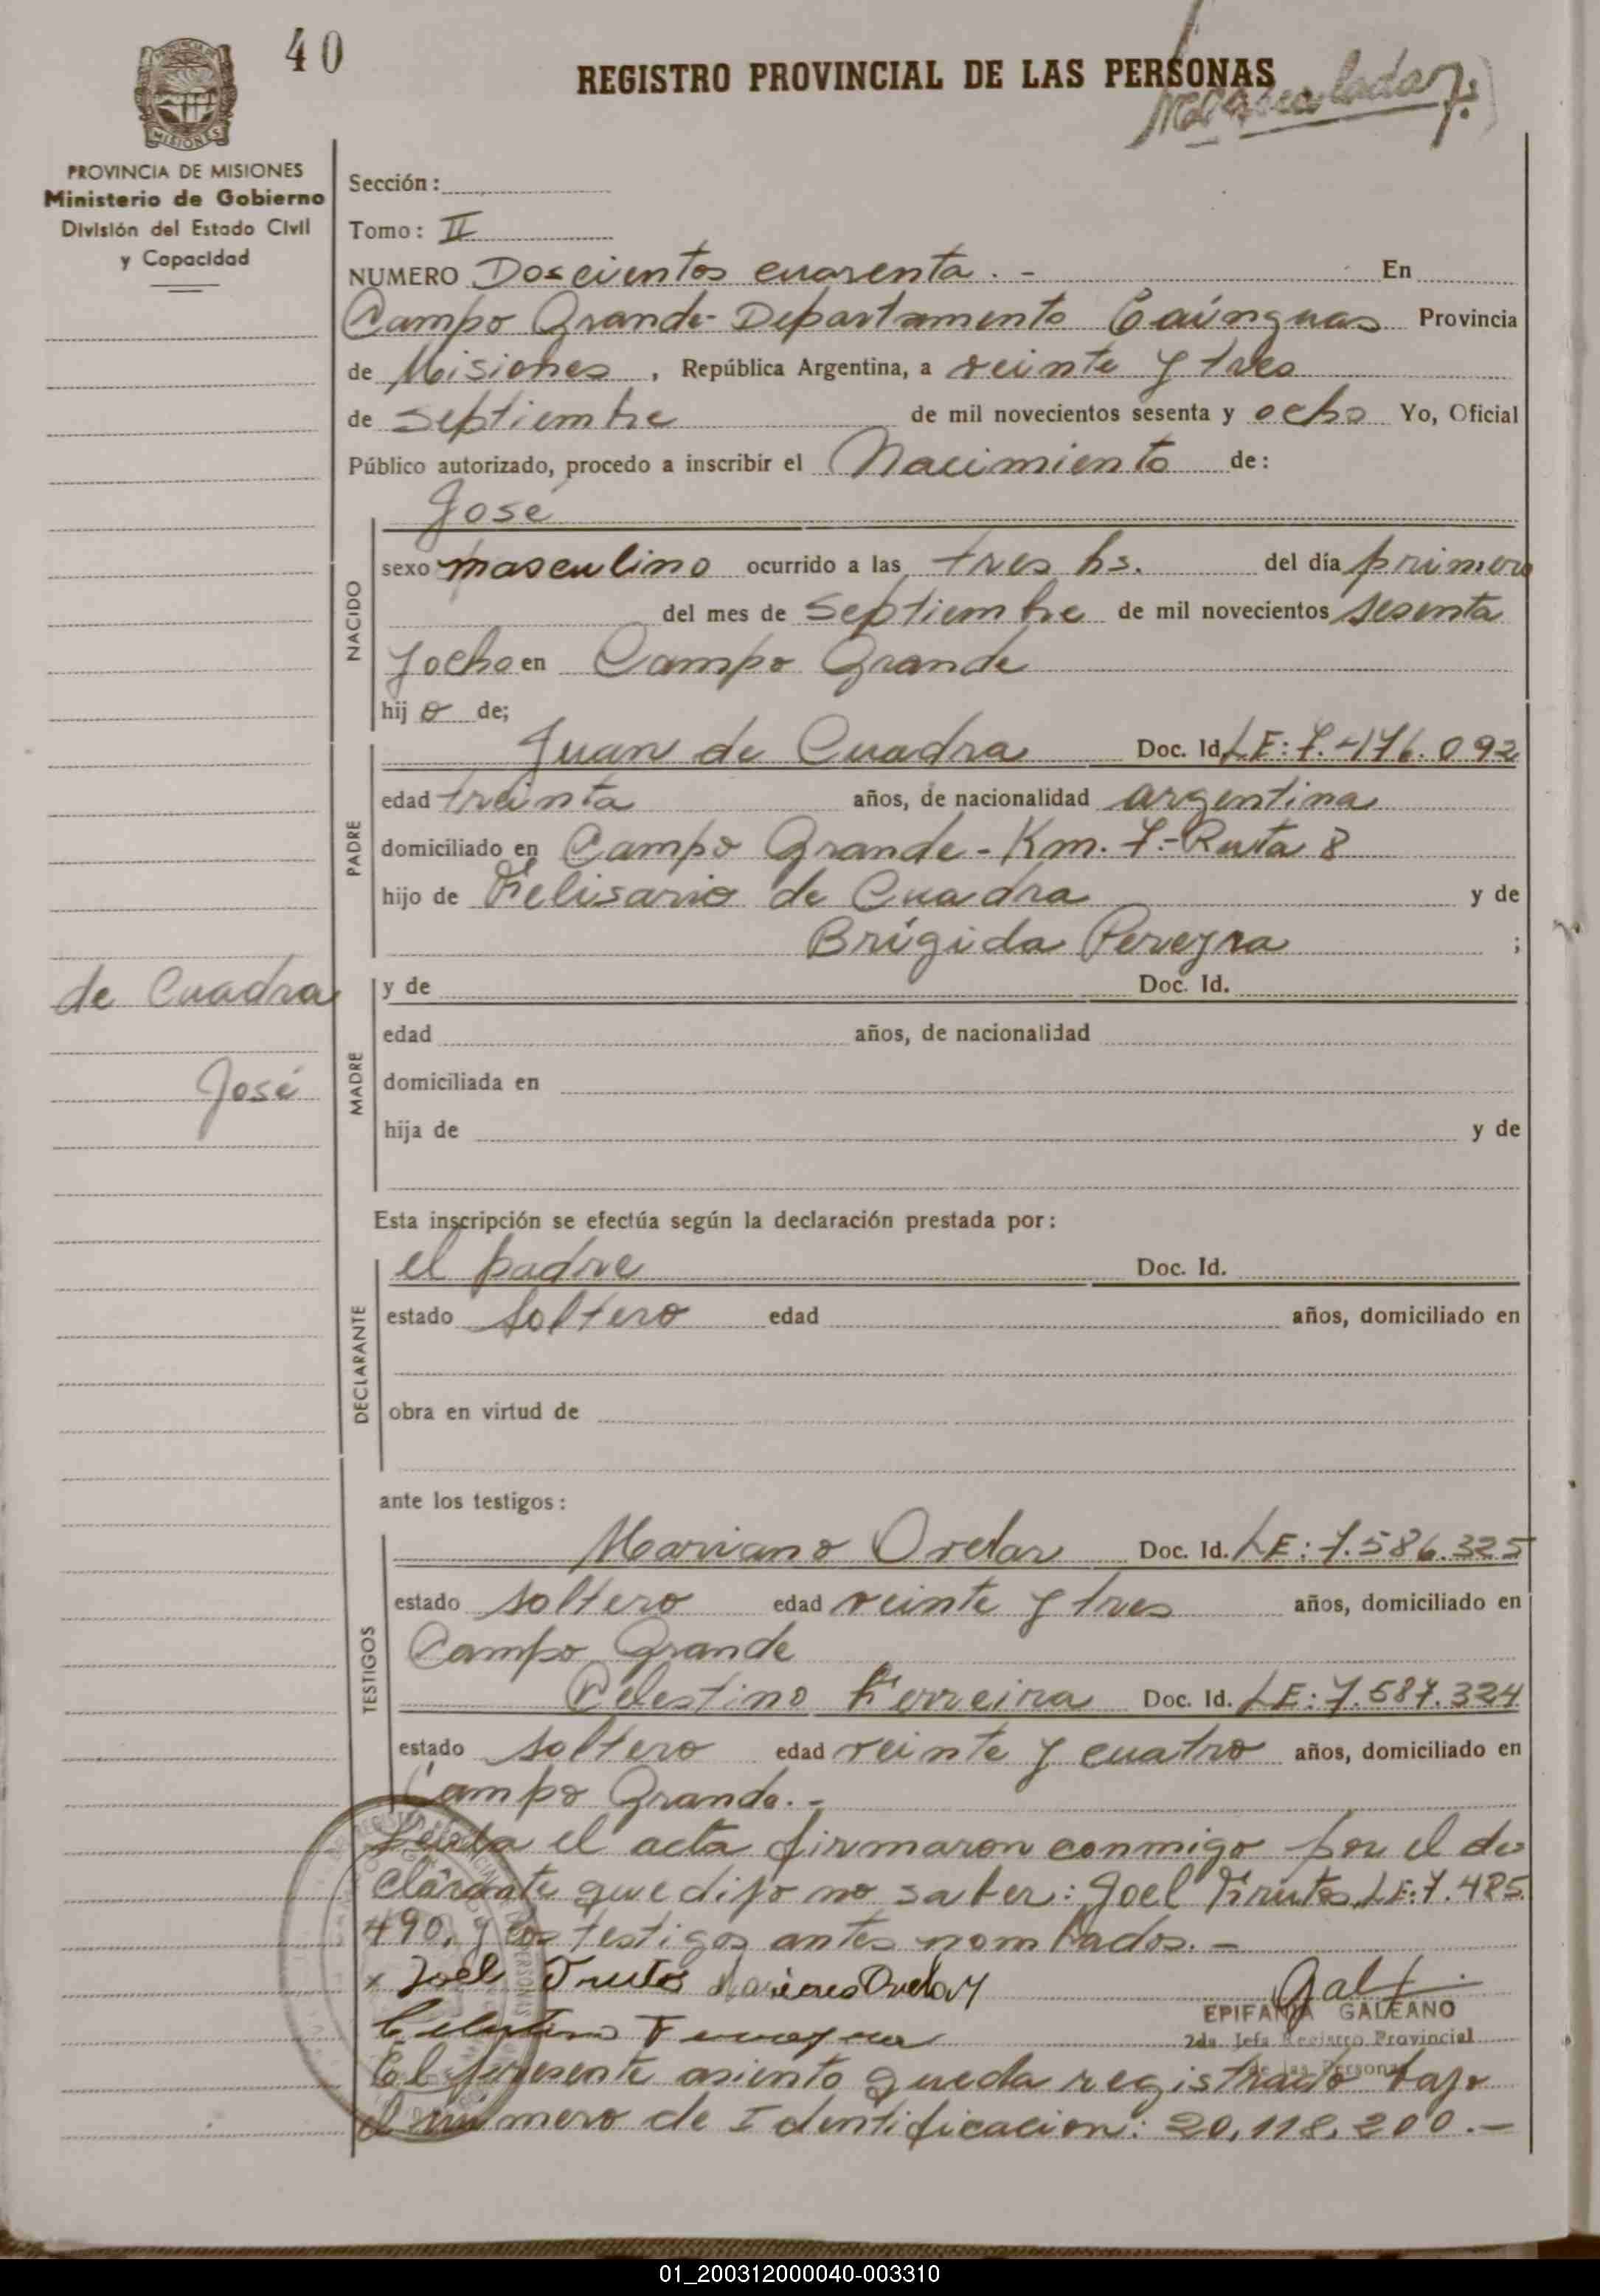 40
REGISTRO PROVINCIAL DE LAS PERSONAS
MISIONES
PROVINCIA DE MISIONES
Ministerio de Gobierno
División del Estado Civil
y Capacidad
Sección:
Tomo: II
NUMERO Doscientos cuarenta. - En
Campo Grande - Departamento Caínguas Provincia
de Misiones, República Argentina, a veinte y tres
de septiembre de mil novecientos sesenta y ocho Yo, Oficial
Público autorizado, procedo a inscribir el Nacimiento de:
José
NACIDO
sexo masculino ocurrido a las tres hs. del día primero
del mes de Septiembre de mil novecientos sesenta
y ocho en Campo Grande
hijo de;
PADRE
Juan de Cuadra Doc. Id. LE: 7.-176.092
edad treinta años, de nacionalidad argentina
domiciliado en Campo Grande - Km. 7.- Ruta 8
hijo de Felisario de Cuadra y de
Brígida Pereyra ;
de Cuadra
José
MADRE
y de Doc. Id.
edad años, de nacionalidad
domiciliada en
hija de y de
Esta inscripción se efectúa según la declaración prestada por:
DECLARANTE
el padre Doc. Id.
estado soltero edad años, domiciliado en
obra en virtud de
ante los testigos:
TESTIGOS
Mariano Ovelar Doc. Id. LE: 7.586.325
estado soltero edad veinte y tres años, domiciliado en
Campo Grande
Celestino Ferreira Doc. Id. LE: 7.587.324
estado soltero edad veinte y cuatro años, domiciliado en
Campo Grande. -
Leída el acta firmaron conmigo por el de
clarante que dijo no saber: Joel Frutos, LE: 7.485
490, y los testigos antes nombrados. -
x Joel Frutos
EPIFANIA GALEANO
2da. Jefa Registro Provincial
de las Personas
El presente asiento queda registrado bajo
el número de Identificación: 20,118,200.-
01_200312000040-003310